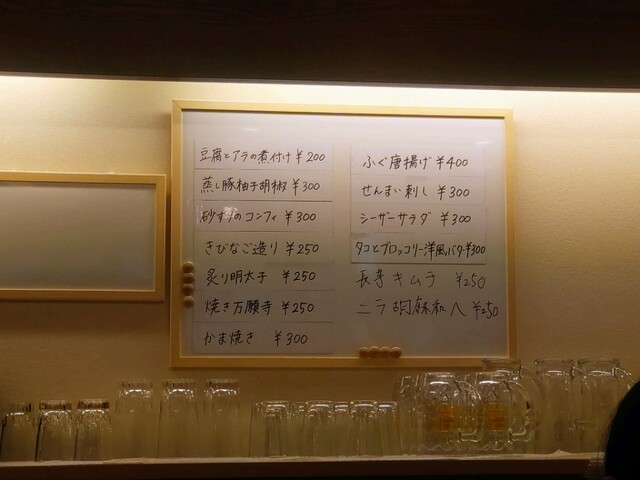 豆腐とアラの煮付け ¥200
蒸し豚柚子胡椒 ¥300
砂ずりのコンフィ ¥300
きびなご造り ¥250
炙り明太子 ¥250
焼き万願寺 ¥250
かま焼き ¥300
ふぐ唐揚げ ¥400
せんまい刺し ¥300
シーザーサラダ ¥300
タコとブロッコリー洋風バター¥300
長芋キムラ ¥250
ニラ胡麻和へ ¥250